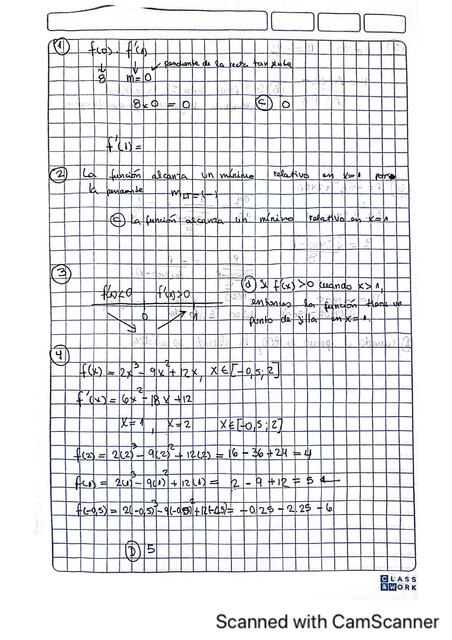 1) f(0) · f'(1)
↓ ↓ pendiente de la recta tangente
8 m=0
8×0 = 0 (C) 0
f'(1) =
2) La función alcanza un mínimo relativo en x=1 porq
la pendiente m
(C) La función alcanza un mínimo relativo en x=1
3) (d) Si f'(x)>0 cuando x>1,
f'(x)<0 f'(x)>0 entonces la función tiene un
0 1 punto de silla en x=1.
4)
f(x) = 2x³ - 9x² + 12x, x∈[-0,5; 2]
f'(x) = 6x² - 18x + 12
x=1 , x=2 x∈[-0,5; 2]
f(2) = 2(2)³ - 9(2)² + 12(2) = 16 - 36 + 24 = 4
f(1) = 2(1)³ - 9(1)² + 12(1) = 2 - 9 + 12 = 5
f(-0,5) = 2(-0,5)³ - 9(-0,5)² + 12(-0,5) = -0.25 - 2.25 - 6
(D) 5
CLASS
&WORK
Scanned with CamScanner